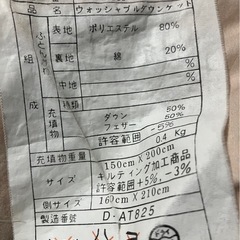 品名 ウォッシャブルダウンケット
組成 ふとんがわ 表地 ポリエステル 80%
裏地 綿 20%
中地 %
充填物 種類
ダウン 50%
フェザー 50%
許容範囲 -5%
充填物重量 0.4 Kg
サイズ 150cm X 200cm
キルティング加工商品
許容範囲+5%.-3%
側サイズ 169cm X 210cm
製造番号 D-AT825